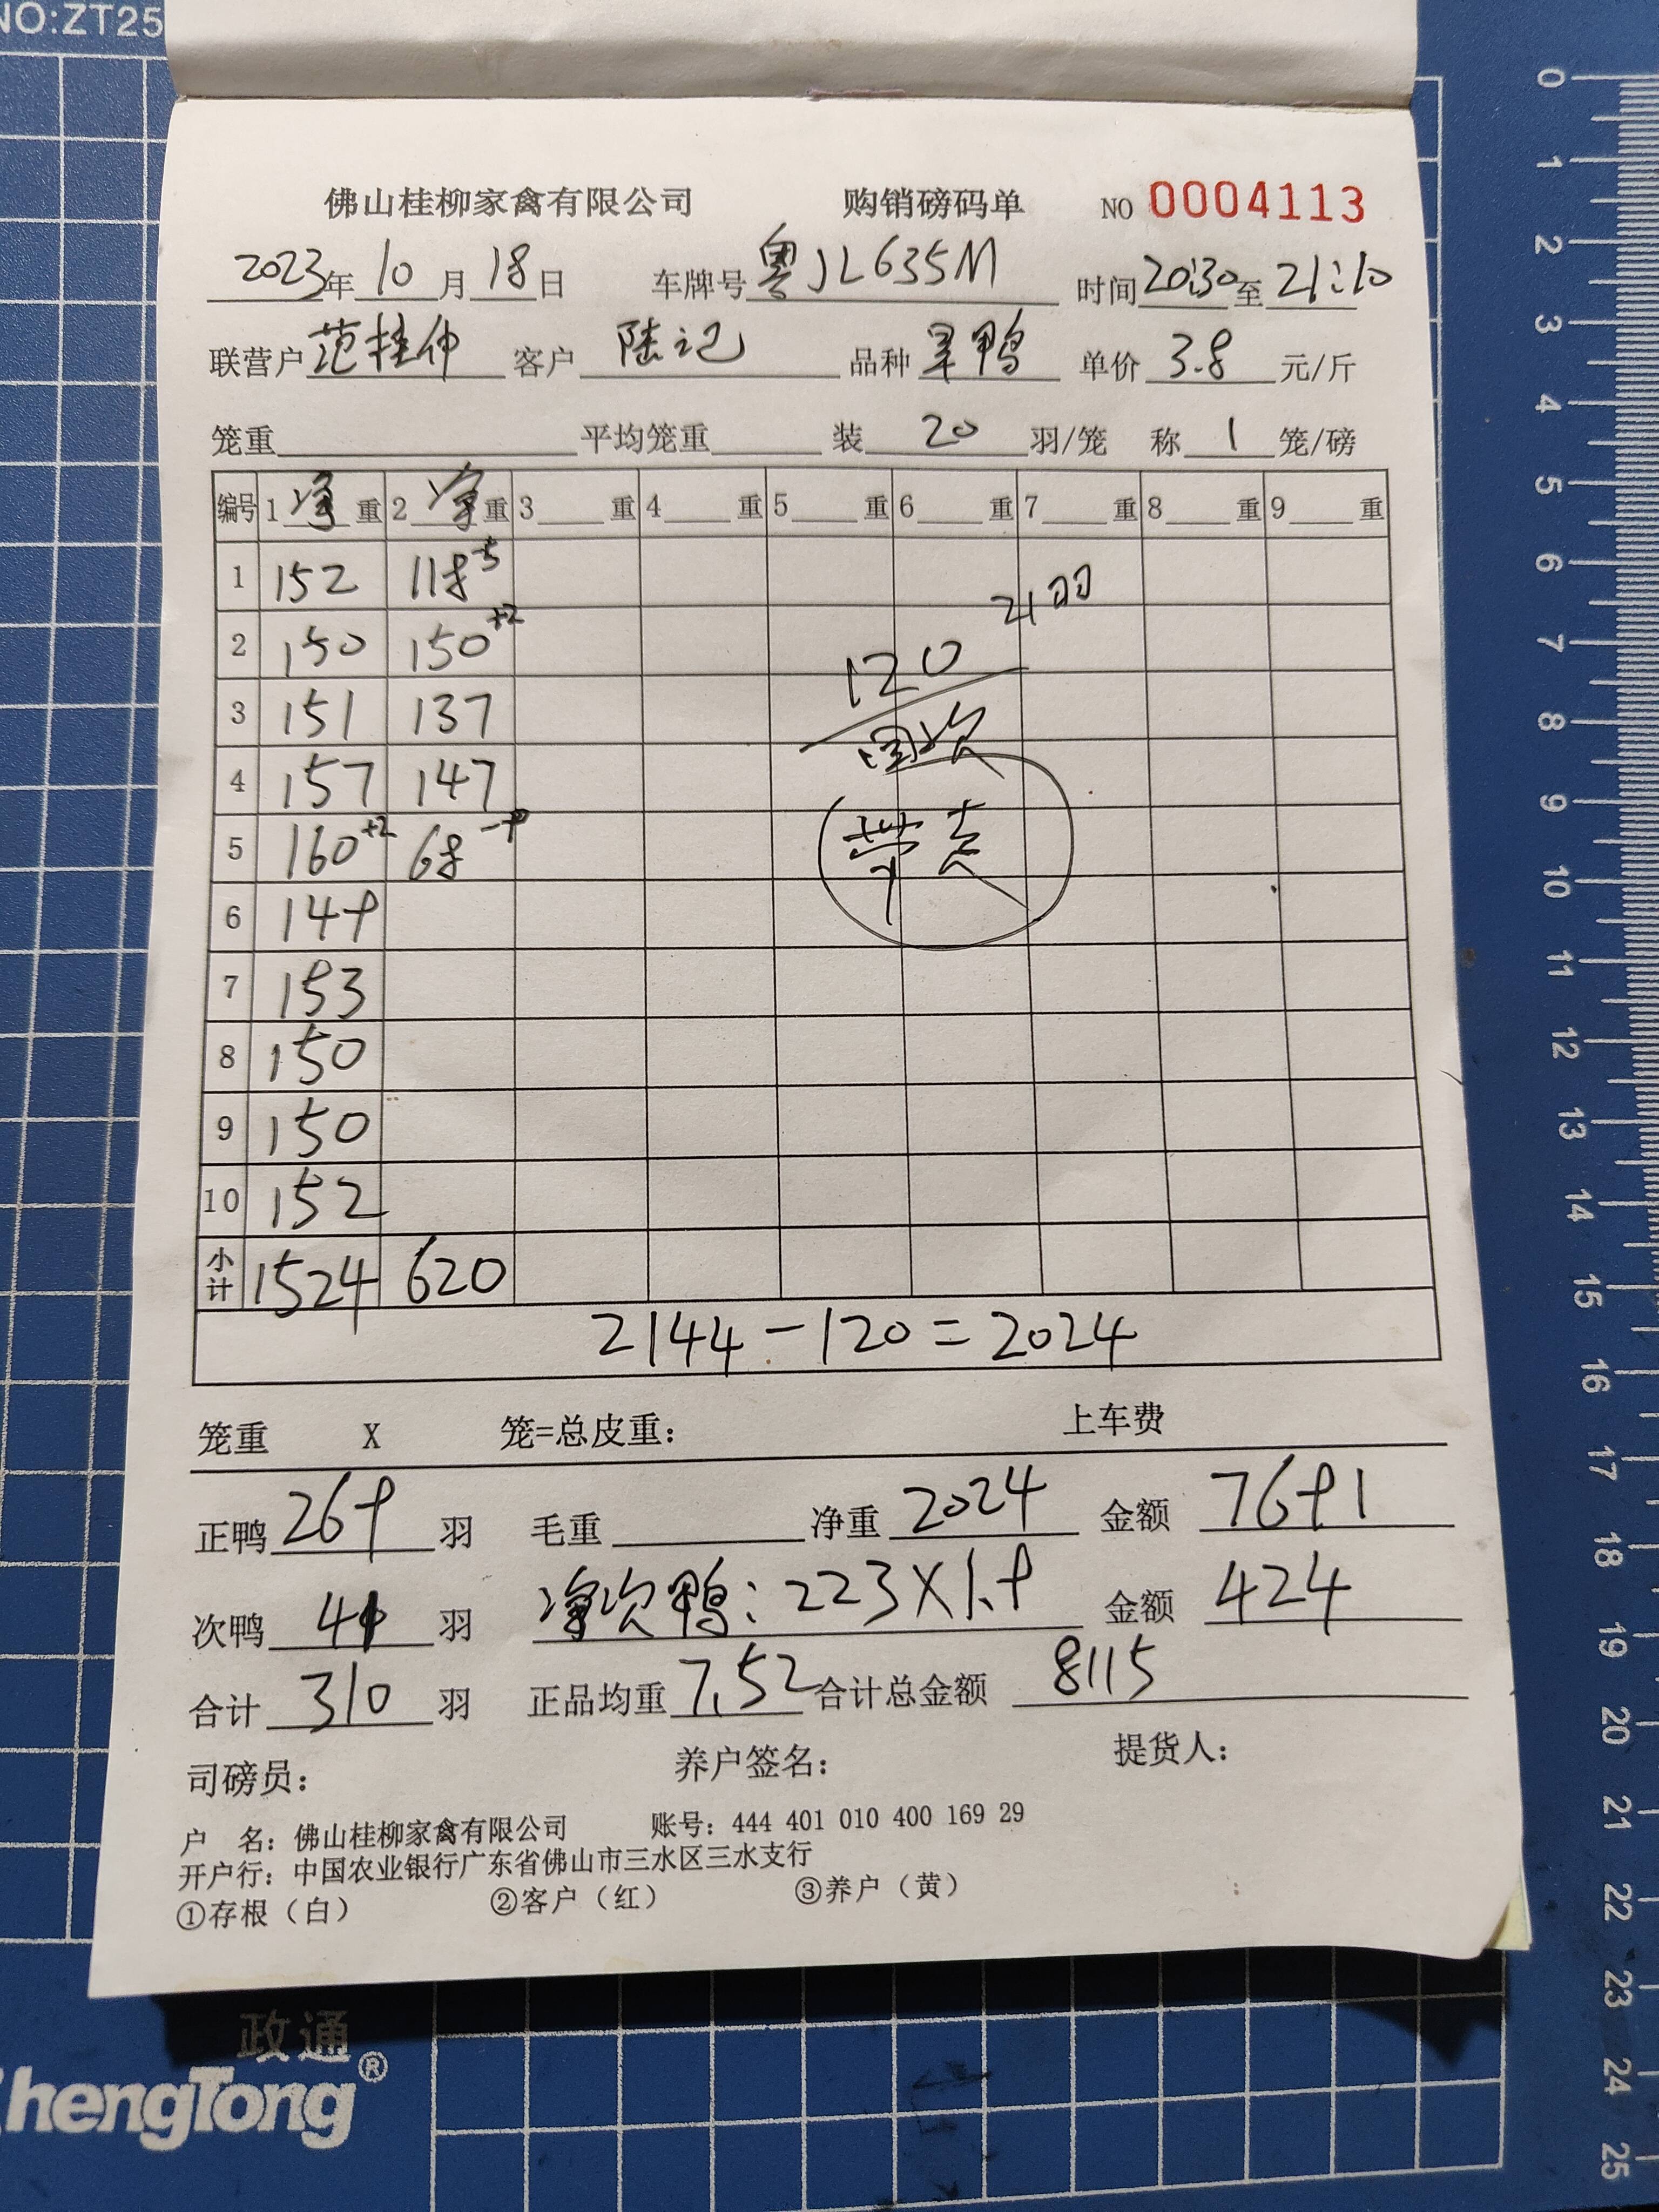 NO:ZT25
佛山桂柳家禽有限公司 购销磅码单 NO 0004113
2023年10月18日 车牌号 粤JL635M 时间 20:30至21:10
联营户 范桂仲 客户 陆记 品种 鸭 单价 3.8 元/斤
笼重 平均笼重 装 20 羽/笼 称 1 笼/磅
编号 1 净 重 2 净 重 3 重 4 重 5 重 6 重 7 重 8 重 9 重
1 152 118 -5
2 150 150 +2 21羽
3 151 137 120 次
4 157 147
5 160 +2 68 -9 带走
6 149
7 153
8 150
9 150
10 152
小计 1524 620
2144-120=2024
笼重 X 笼=总皮重: 上车费
正鸭 269 羽 毛重 净重 2024 金额 7691
次鸭 41 羽 净次鸭:223X1.9 金额 424
合计 310 羽 正品均重 7.52 合计总金额 8115
司磅员: 养户签名: 提货人:
户 名: 佛山桂柳家禽有限公司 账号: 444 401 010 400 169 29
开户行: 中国农业银行广东省佛山市三水区三水支行
①存根(白) ②客户(红) ③养户(黄)
政通
ZhengTong®
0
1
2
3
4
5
6
7
8
9
10
11
12
13
14
15
16
17
18
19
20
21
22
23
24
25